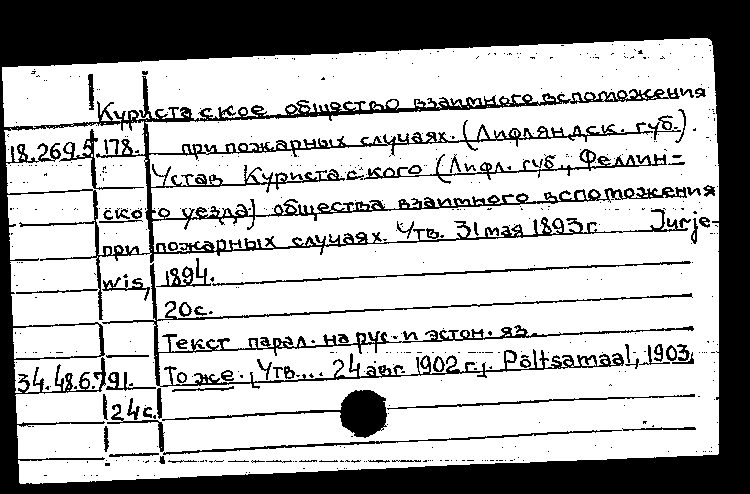 Куристаское общество взаимного вспоможения
18.269.5.178. при пожарных случаях. (Лифляндск. губ.).
Устав Куристаского (Лифл. губ., Феллин-
ского уезда) общества взаимного вспоможения
при пожарных случаях. Утв. 31 мая 1893 г. Jurje-
wis, 1894.
20с.
Текст парал. на рус. и эстон. яз.
34.48.6.791. То же. [Утв.... 24 авг. 1902 г.]. Põltsamaal, 1903.
24с.